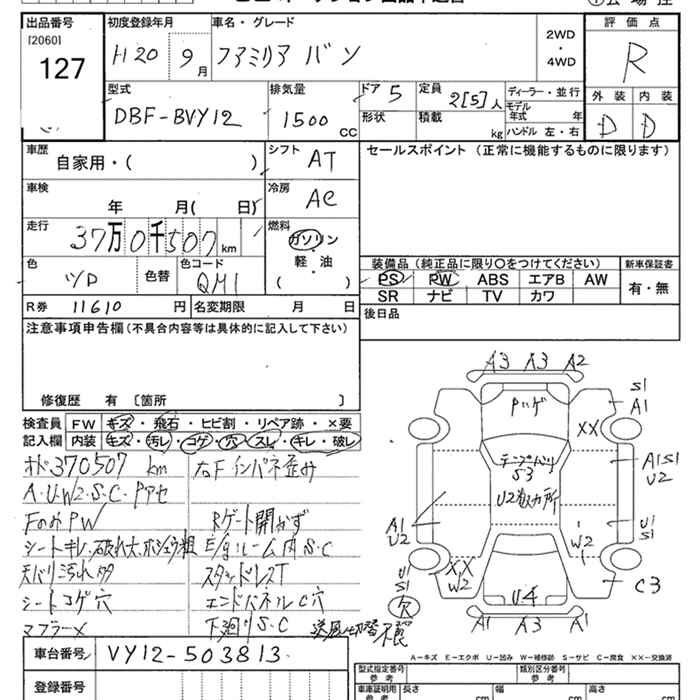 出品番号
[2060]
127
初度登録年月
H20 9月
車名・グレード
ファミリア バン
2WD
・
4WD
評価点
R
外装 内装
D D
型式
DBF-BVY12
排気量
1500 cc
ドア 5
形状
定員 2[5]人
積載 kg
ディーラー・並行
モデル年式 年
ハンドル 左・右
車歴
自家用・( )
シフト AT
車検
年 月( 日)
冷房 AC
走行
37万0千507 km
燃料
ガソリン
軽・油
( )
色
色替
色コード
QM1
R券 11610 円
名変期限 月 日
セールスポイント (正常に機能するものに限ります)
装備品 (純正品に限り○をつけてください)
PS RW ABS エアB AW
SR ナビ TV カワ
新車保証書
有・無
後日品
注意事項申告欄 (不具合内容等は具体的に記入して下さい)
修復歴 有 〔箇所 〕
検査員記入欄
FW キズ・飛石・ヒビ割・リペア跡・×要
内装 キズ・汚レ・コゲ・穴・スレ・キレ・破レ
オド370507 km
A・U・W2・S・C・Pアセ
FのみPW
天バリ汚れ多
シートコゲ穴
マフラーメ
右Fインパネ歪み
Rゲート開かず
E/gルーム内S・C
スタッドレスT
エンドパネルC穴
下廻りS・C
A3 A3 A2
S1
A1
XX
A1S1
U2
S3
A1
U2
W2
U1
S1
XX
W2
U1
S1
欠
U4
C3
A1 A3 A1
車台番号 VY12-503813
登録番号
A→キズ E→エクボ U→凹み W→補修跡 S→サビ C→腐食 XX→交換済
型式指定番号
参考
類別区分番号
参考
車庫証明用
参考
長さ cm
幅 cm
高さ cm